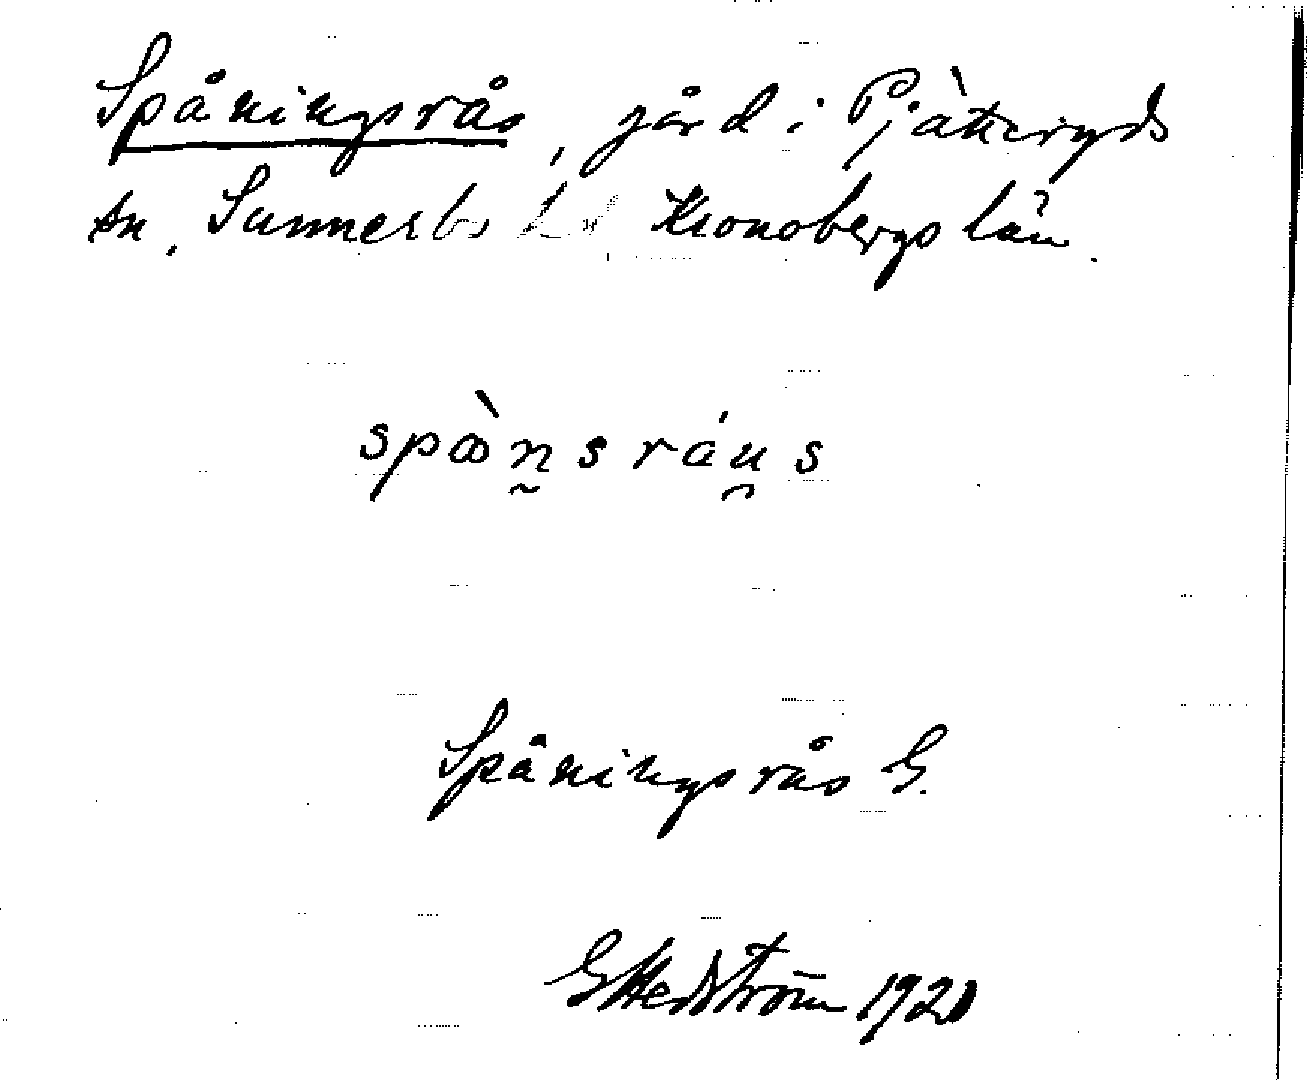 Spåningsrås, gård i Pjätteryds
sn, Sunnerbo hd Kronobergs län.
spɷ̀n̰sráu̯s
Spåningsrås G.
G Hedström 1920